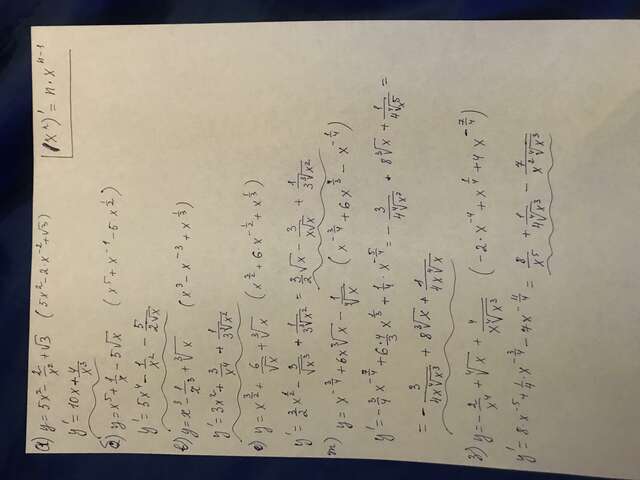 (xⁿ)' = n · x^(n-1)
а) y = 5x² - 2/x² + √3 (5x² - 2·x^(-2) + √3)
y' = 10x + 4/x³
б) y = x⁵ + 1/x - 5√x (x⁵ + x^(-1) - 5·x^(1/2))
y' = 5x⁴ - 1/x² - 5/(2√x)
в) y = x³ - 1/x³ + ∛x (x³ - x^(-3) + x^(1/3))
y' = 3x² + 3/x⁴ + 1/(3∛x²)
е) y = x^(3/2) + 6/√x + ∛x (x^(3/2) + 6·x^(-1/2) + x^(1/3))
y' = 3/2 x^(1/2) - 3/√x³ + 1/(3∛x²) = 3/2 √x - 3/(x√x) + 1/(3∛x²)
ж) y = x^(-3/4) + 6x∛x - 1/∜x (x^(-3/4) + 6x^(4/3) - x^(-1/4))
y' = -3/4 x^(-7/4) + 6·4/3 x^(1/3) + 1/4·x^(-5/4) = -3/(4∜x⁷) + 8∛x + 1/(4∜x⁵) =
= -3/(4x∜x³) + 8∛x + 1/(4x∜x)
з) y = -2/x⁴ + ∜x + 4/(x∜x³) (-2·x^(-4) + x^(1/4) + 4x^(-7/4))
y' = 8x^(-5) + 1/4 x^(-3/4) - 7x^(-11/4) = 8/x⁵ + 1/(4∜x³) - 7/(x²∜x³)